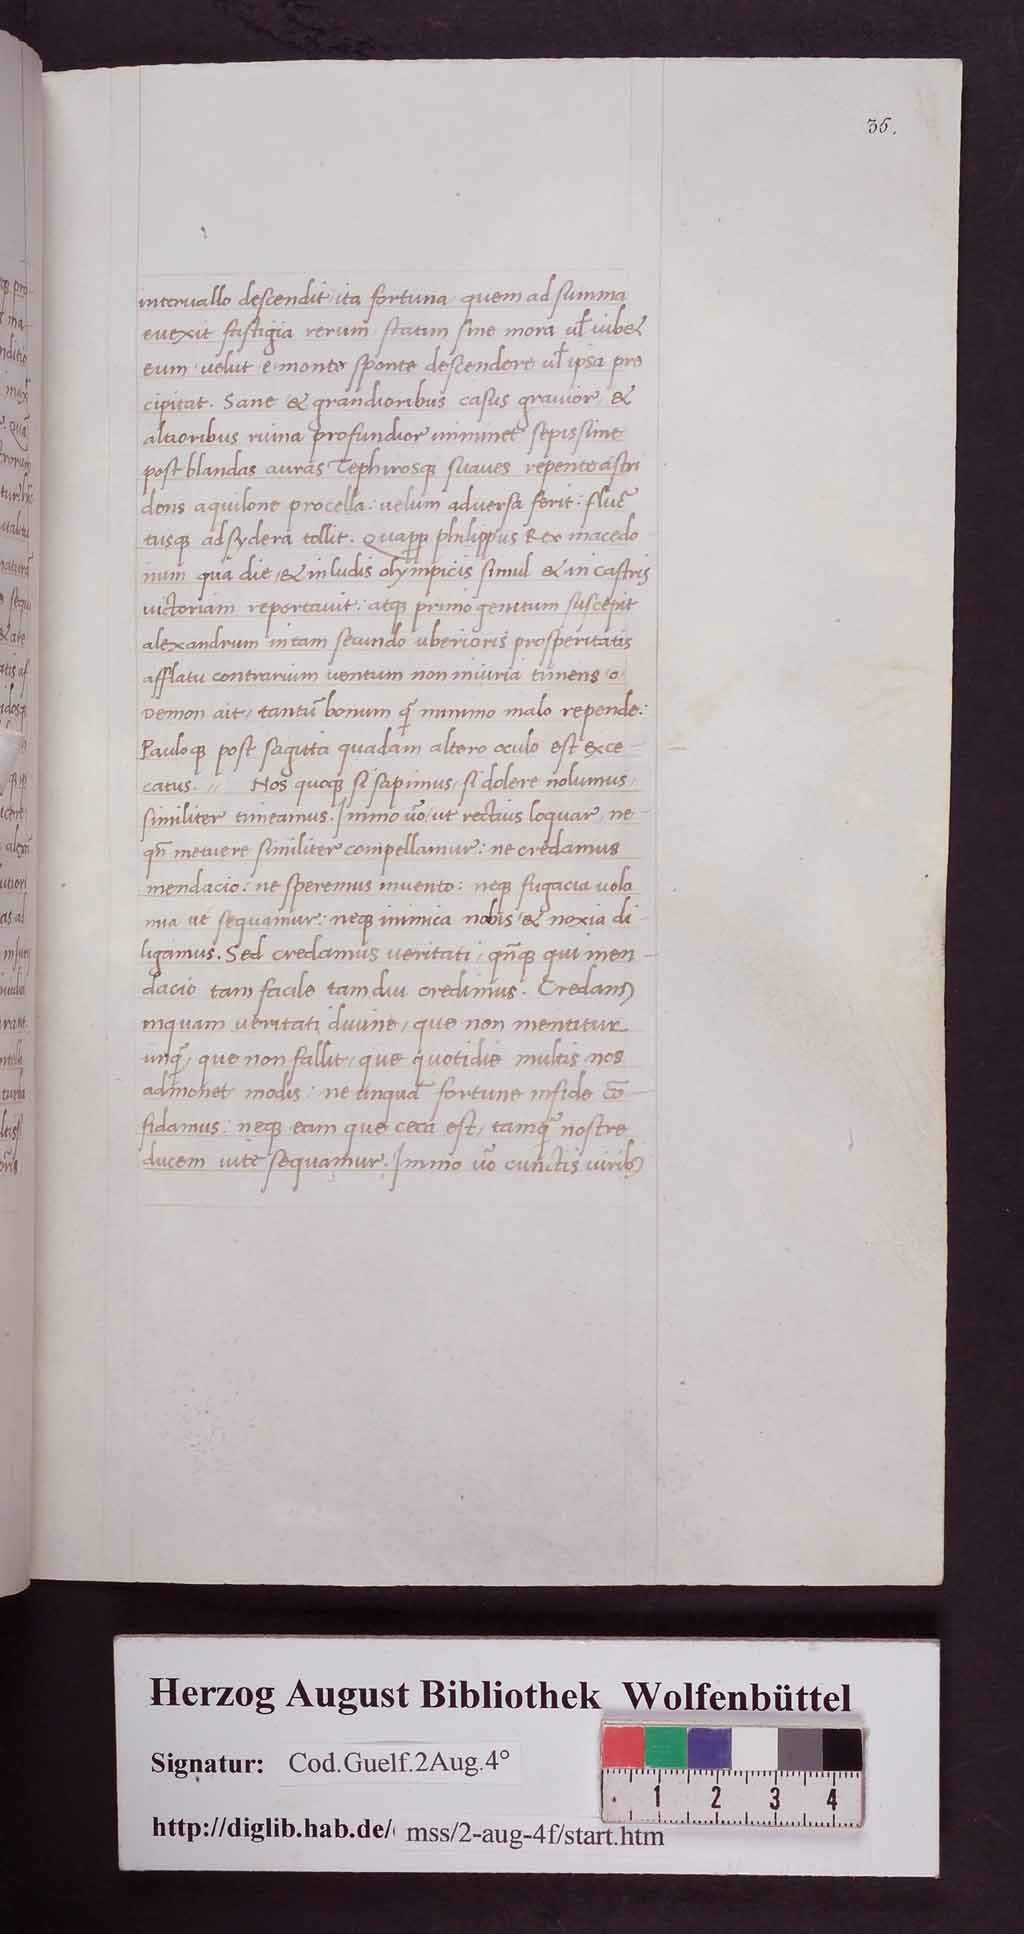 36.
interuallo descendit ita fortuna quem ad summa
euexit fastigia rerum statim sine mora ul̃ iubet
eum uelut e monte sponte descendere ul̃ ipsa pre
cipitat. Sane & grandioribus casus grauior, &
altioribus ruina profundior iminnet sepissime
post blandas auras Zephirosq; suaues repente astri
dens aquilone procella: uelum aduersa ferit: fluc̃
tusq; ad sydera tollit. Quapp philippus Rex macedo
num qua die, & in ludis olympicis simul & in castris
uictoriam reportauit: atq; primogenitum suscepit
alexandrum in tam secundo uberioris prosperitatis
afflatu contrarium uentum non iniuria timens o
Demon ait, tantũ bonum q̃ minimo malo repende:
Pauloq; post sagitta quadam altero oculo est exce-
catus. // Nos quoq; si sapimus, si dolere nolumus,
similiter timeamus. Immo uõ, ut rectius loquar, ne-
qñ metuere similiter compellamur: ne credamus
mendacio: ne speremus inuento: neq; fugacia uola
nia ue sequamur: neq; inimica nobis & noxia di-
ligamus. Sed credamus ueritati, qñq; qui men-
dacio tam facile tam diu credimus. Credam9
inquam ueritati diuine, que non mentitur
unq̃, que non fallit, que quotidie multis nos
admonet modis: ne unquã fortune infide cõ-
fidamus: neq; eam que ceca est, tamq̃ nostre
ducem uite sequamur. Immo uõ cunctis uirib9
Herzog August Bibliothek Wolfenbüttel
Signatur: Cod.Guelf.2Aug.4°
http://diglib.hab.de/ mss/2-aug-4f/start.htm
1 2 3 4